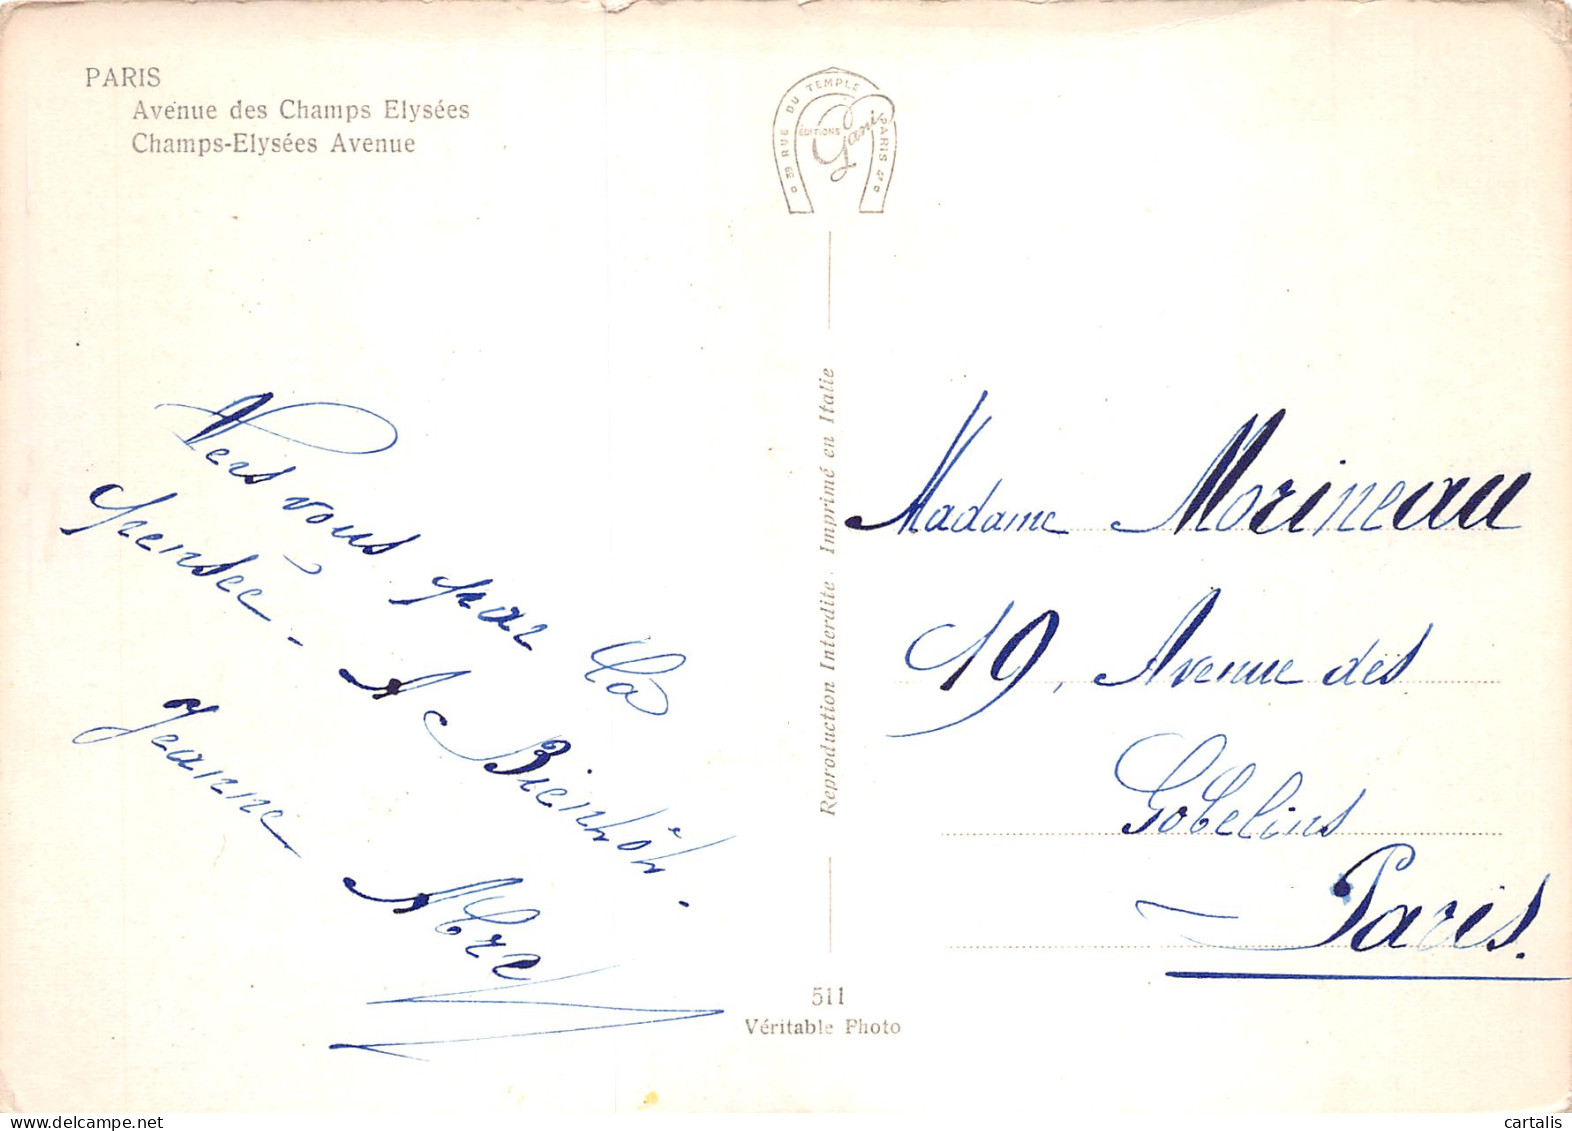 PARIS
Avenue des Champs Elysées
Champs-Elysées Avenue
59 RUE DU TEMPLE PARIS 4e
EDITIONS
Gani
Vers vous par la
pensée - A Bientôt.
Jeanne
Reproduction Interdite. Imprimé en Italie
Madame Morineau
19, Avenue des
Gobelins
Paris.
511
Véritable Photo
cartalis